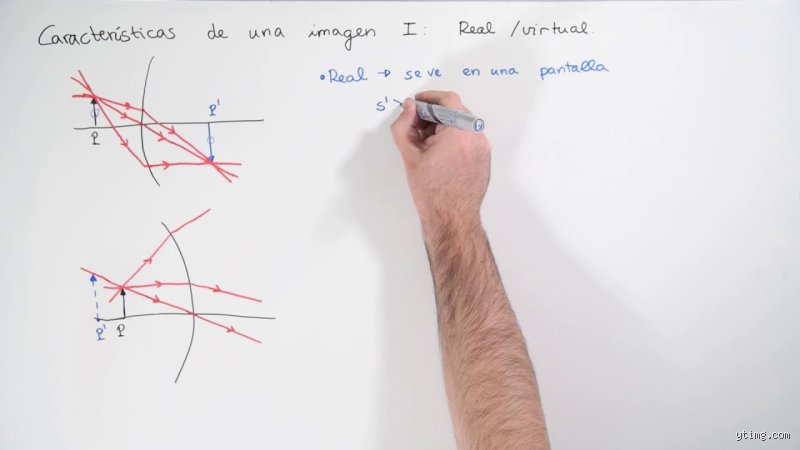 Características de una imagen I: Real /virtual.
• Real → se ve en una pantalla
s' >
P'
P
P' P
ytimg.com